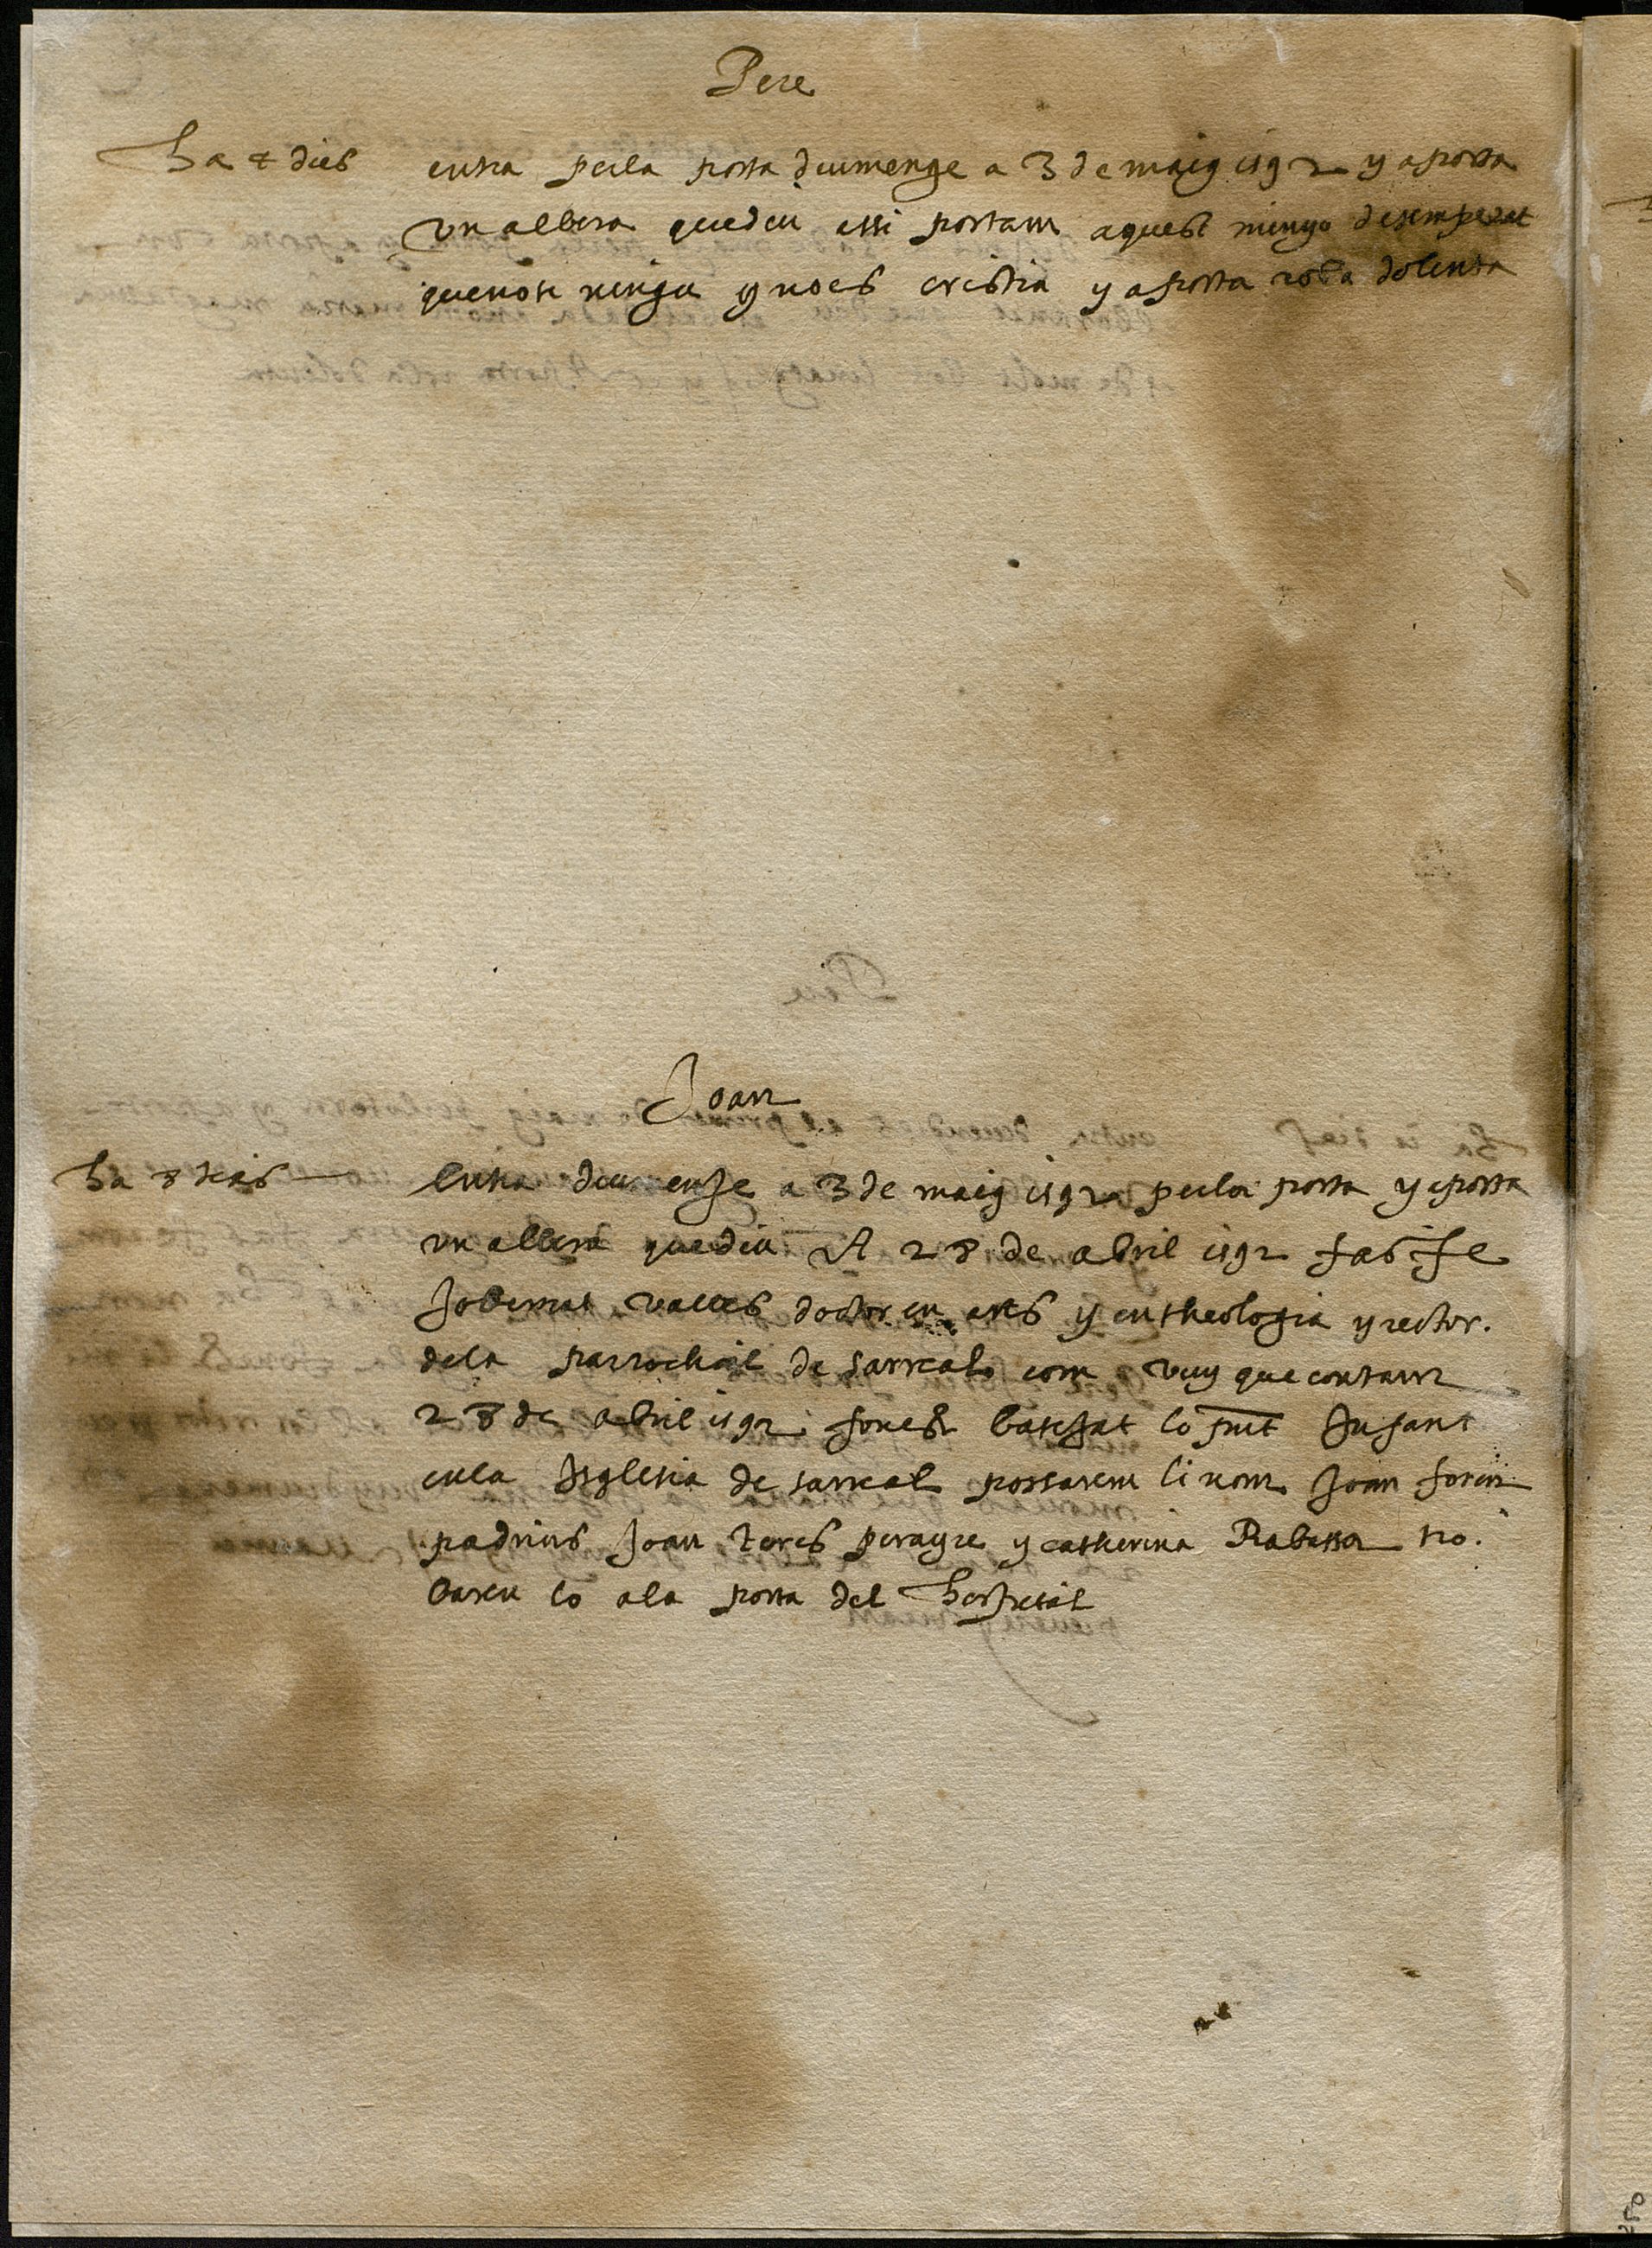 Pere
ha 2 dies
entra perla porta diumenge a 3 de maig 1592 y aporta
vn albera quediu assi portam aquest minyo desemperat
quenote ningu y noes cristia y aporta roba dolenta
Joan
ha 8 dias
Entra diumenge a 3 de maig 1592 perla porta y aporta
vn albera quediu A 28 de abril 1592 fas fe
Jo valles doctor en arts y entheologia y rector.
dela parrochial de sarreal com vuy que contam
28 de abril 1592 fonch batejat lo pnt Infant
enla Isglesia de sarreal possarem li nom Joan foren
padrins Joan teres perayre y catherina Rabassa tro
baren lo ala porta del hospital